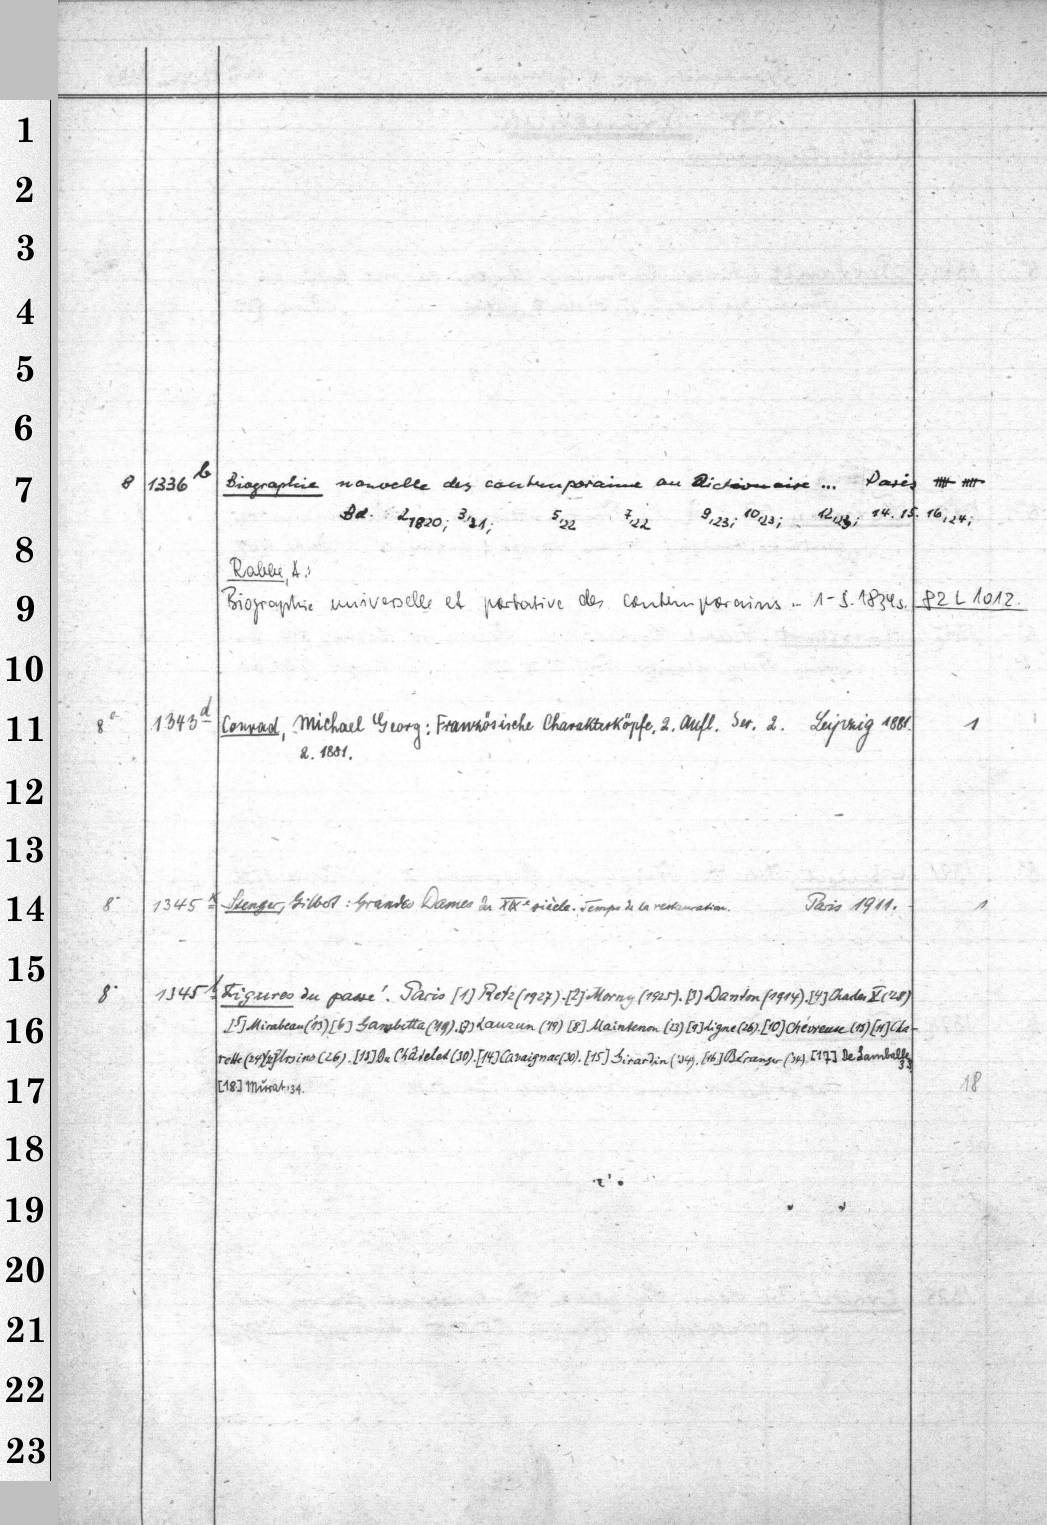 1
2
3
4
5
6
7
8 1336 b Biographie nouvelle des contemporaine ou Dictionaire ... Paris
Bd. 2,1820; 3,21; 5,22 7,22 9,23; 10,23; 12,23; 14. 15. 16,24;
8
Rabbe, A.:
9
Biographie universelle et portative des contemporains .. 1-5. 1834s. 82 L 1012.
10
11
8° 1343 d Conrad, Michael Georg: Französische Charakterköpfe, 2. Aufl. Ser. 2. Leipzig 1881. 1
2. 1881.
12
13
14
8° 1345 k Stenger, Gilbert: Grandes Dames du XIXe siècle. Temps de la restauration. Paris 1911. 1
15
8° 1345 l Figures du passé. Paris [1] Retz (1927). [2] Morny (1925). [3] Danton (1914). [4] Charles X ('28)
16
[5] Mirabeau ('13) [6] Gambetta ('19). [7] Lauzun ('19) [8] Maintenon (23) [9] Ligne (26). [10] Chévreuse (13) [11] Cha-
rette (24) [12] (26). [13] Du Châtelet (30). [14] Cavaignac (30). [15] Girardin ('34). [16] Béranger (34). [17] De Lamballe 33
17
[18] Murat, 34. 18
18
19
20
21
22
23